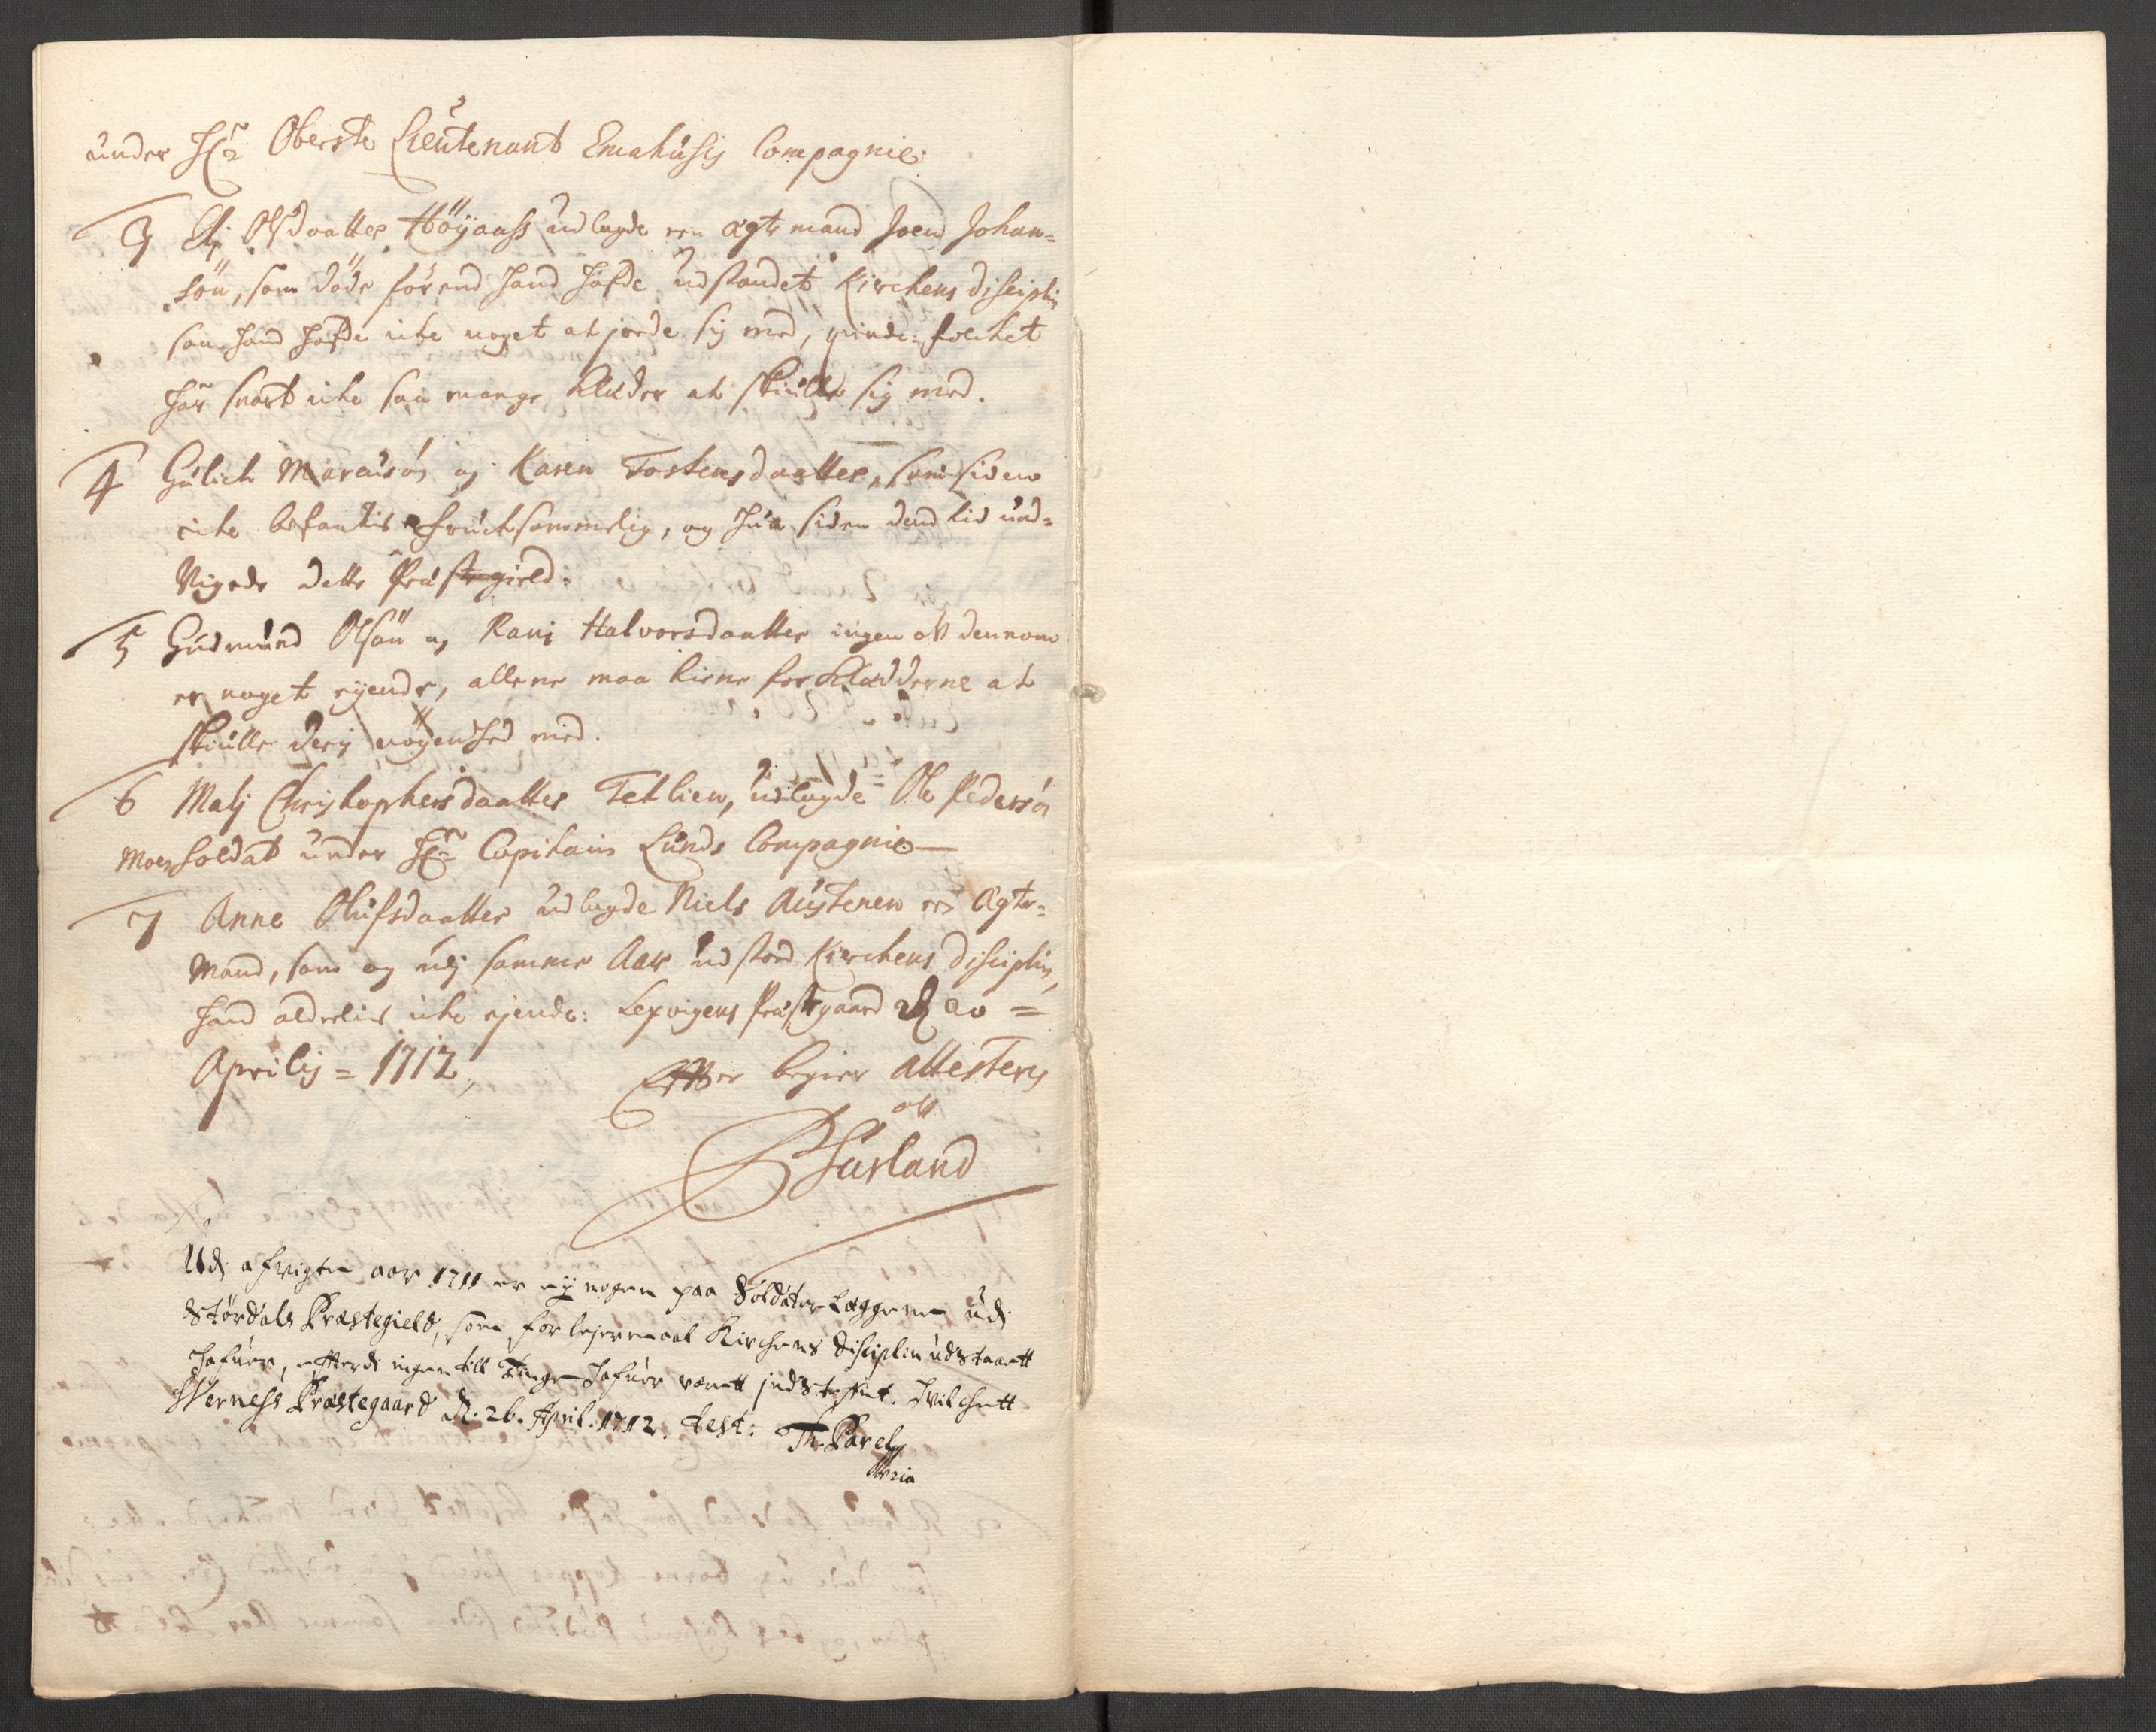 under Hr Oberste Lieutenant Emahusis Compagnie:
3 Eli Olsdaatter Höyaass udlagde een ægte mand Joen Johan=
sön, som döde förend hand hafde udstandet Kirchens disciplin
saa hand hafde iche noget at jorde sig med, qvinde: folchet
har snart iche saa mange Klæder at skiulle sig med.
4 Gulich Maraisön og Karen Tostensdaatter, som siden
iche befantis fruchsommelig, og hun siden dend tid und=
Vigede dette Præstegield:
5 Gudmund Olsön og Rani Halvorsdaatter ingen aff dennom
er noget eyende, allene maa tiene for Klædderne at
skiulle deris nögenhed med.
6 Mali Christophersdaatter Tetlien, udlagde Ole Pedersön
Moe, soldat under Hr Capitain Lunds Compagnie
7 Anne Olufsdaatter udlagde Niels Austenen en Ægte=
Mand, som og udj samme Aar udstod Kirchens disciplin,
hand aldeelis iche ejende: Lexvigens Præstgaard d 20 =
Aprilis = 1712,
Efter begier attesteris
aff
Surland
Udj afvigte aar 1711 er ey nogen paa Soldater Læggerne udj
Stördals Præstegield, som for lejermaal Kirchens Disciplin udstaaett
hafuer, efterdi ingen till Tinge hafuer værett indsteffnt. Hvilchett
Werness Præstegaard d. 26. April. 1712. test:
Th: Parely